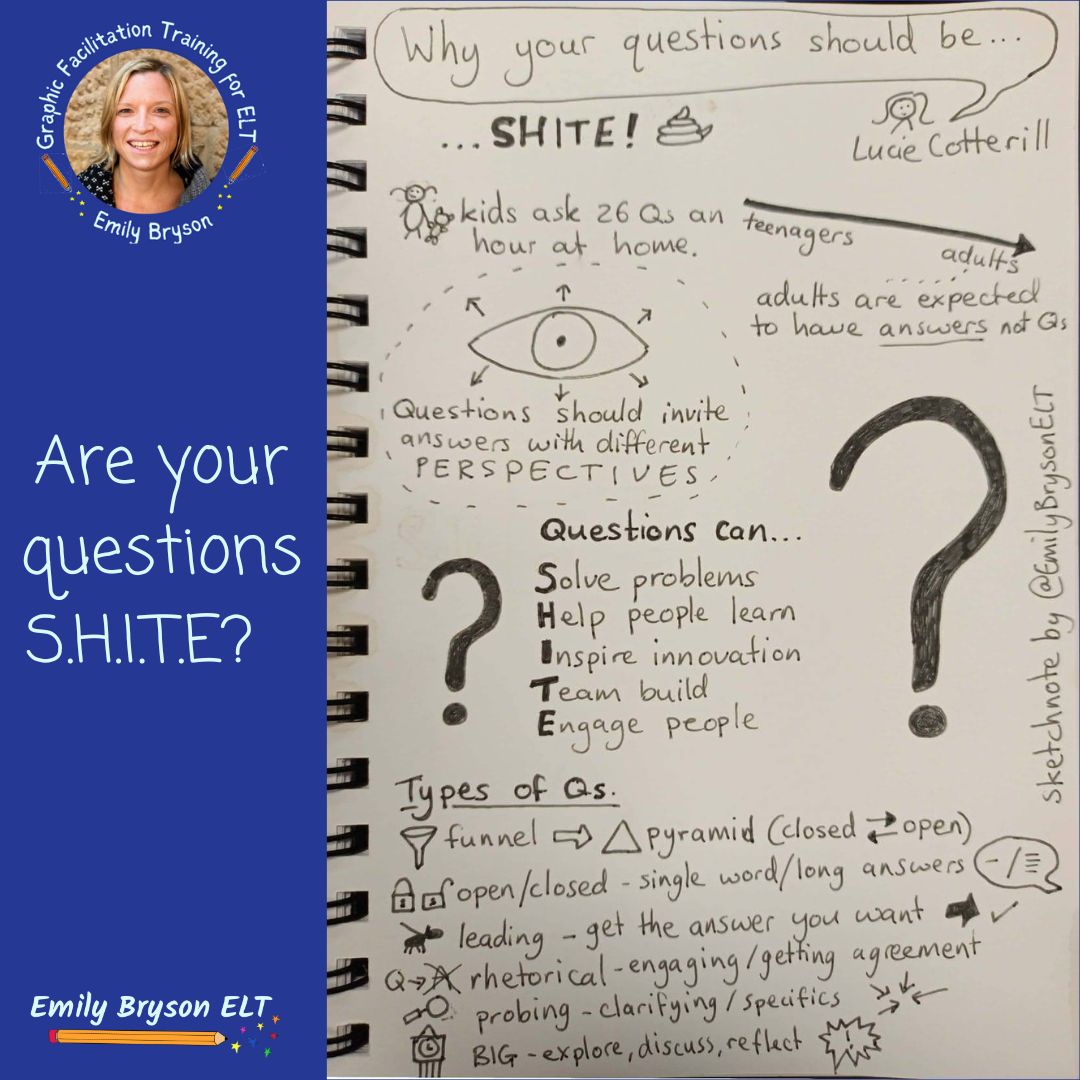 Graphic Facilitation Training for ELT
Emily Bryson
Are your
questions
S.H.I.T.E?
Emily Bryson ELT
Why your questions should be...
...SHITE!
Lucie Cotterill
kids ask 26 Qs an
hour at home.
teenagers
adults
adults are expected
to have answers not Qs
Questions should invite
answers with different
PERSPECTIVES
Questions can...
Solve problems
Help people learn
Inspire innovation
Team build
Engage people
sketchnote by @EmilyBrysonELT
Types of Qs.
funnel ⇨ △ pyramid (closed ⇄ open)
open/closed - single word/long answers
leading - get the answer you want
Q→A rhetorical - engaging/getting agreement
probing - clarifying/specifics
BIG - explore, discuss, reflect !